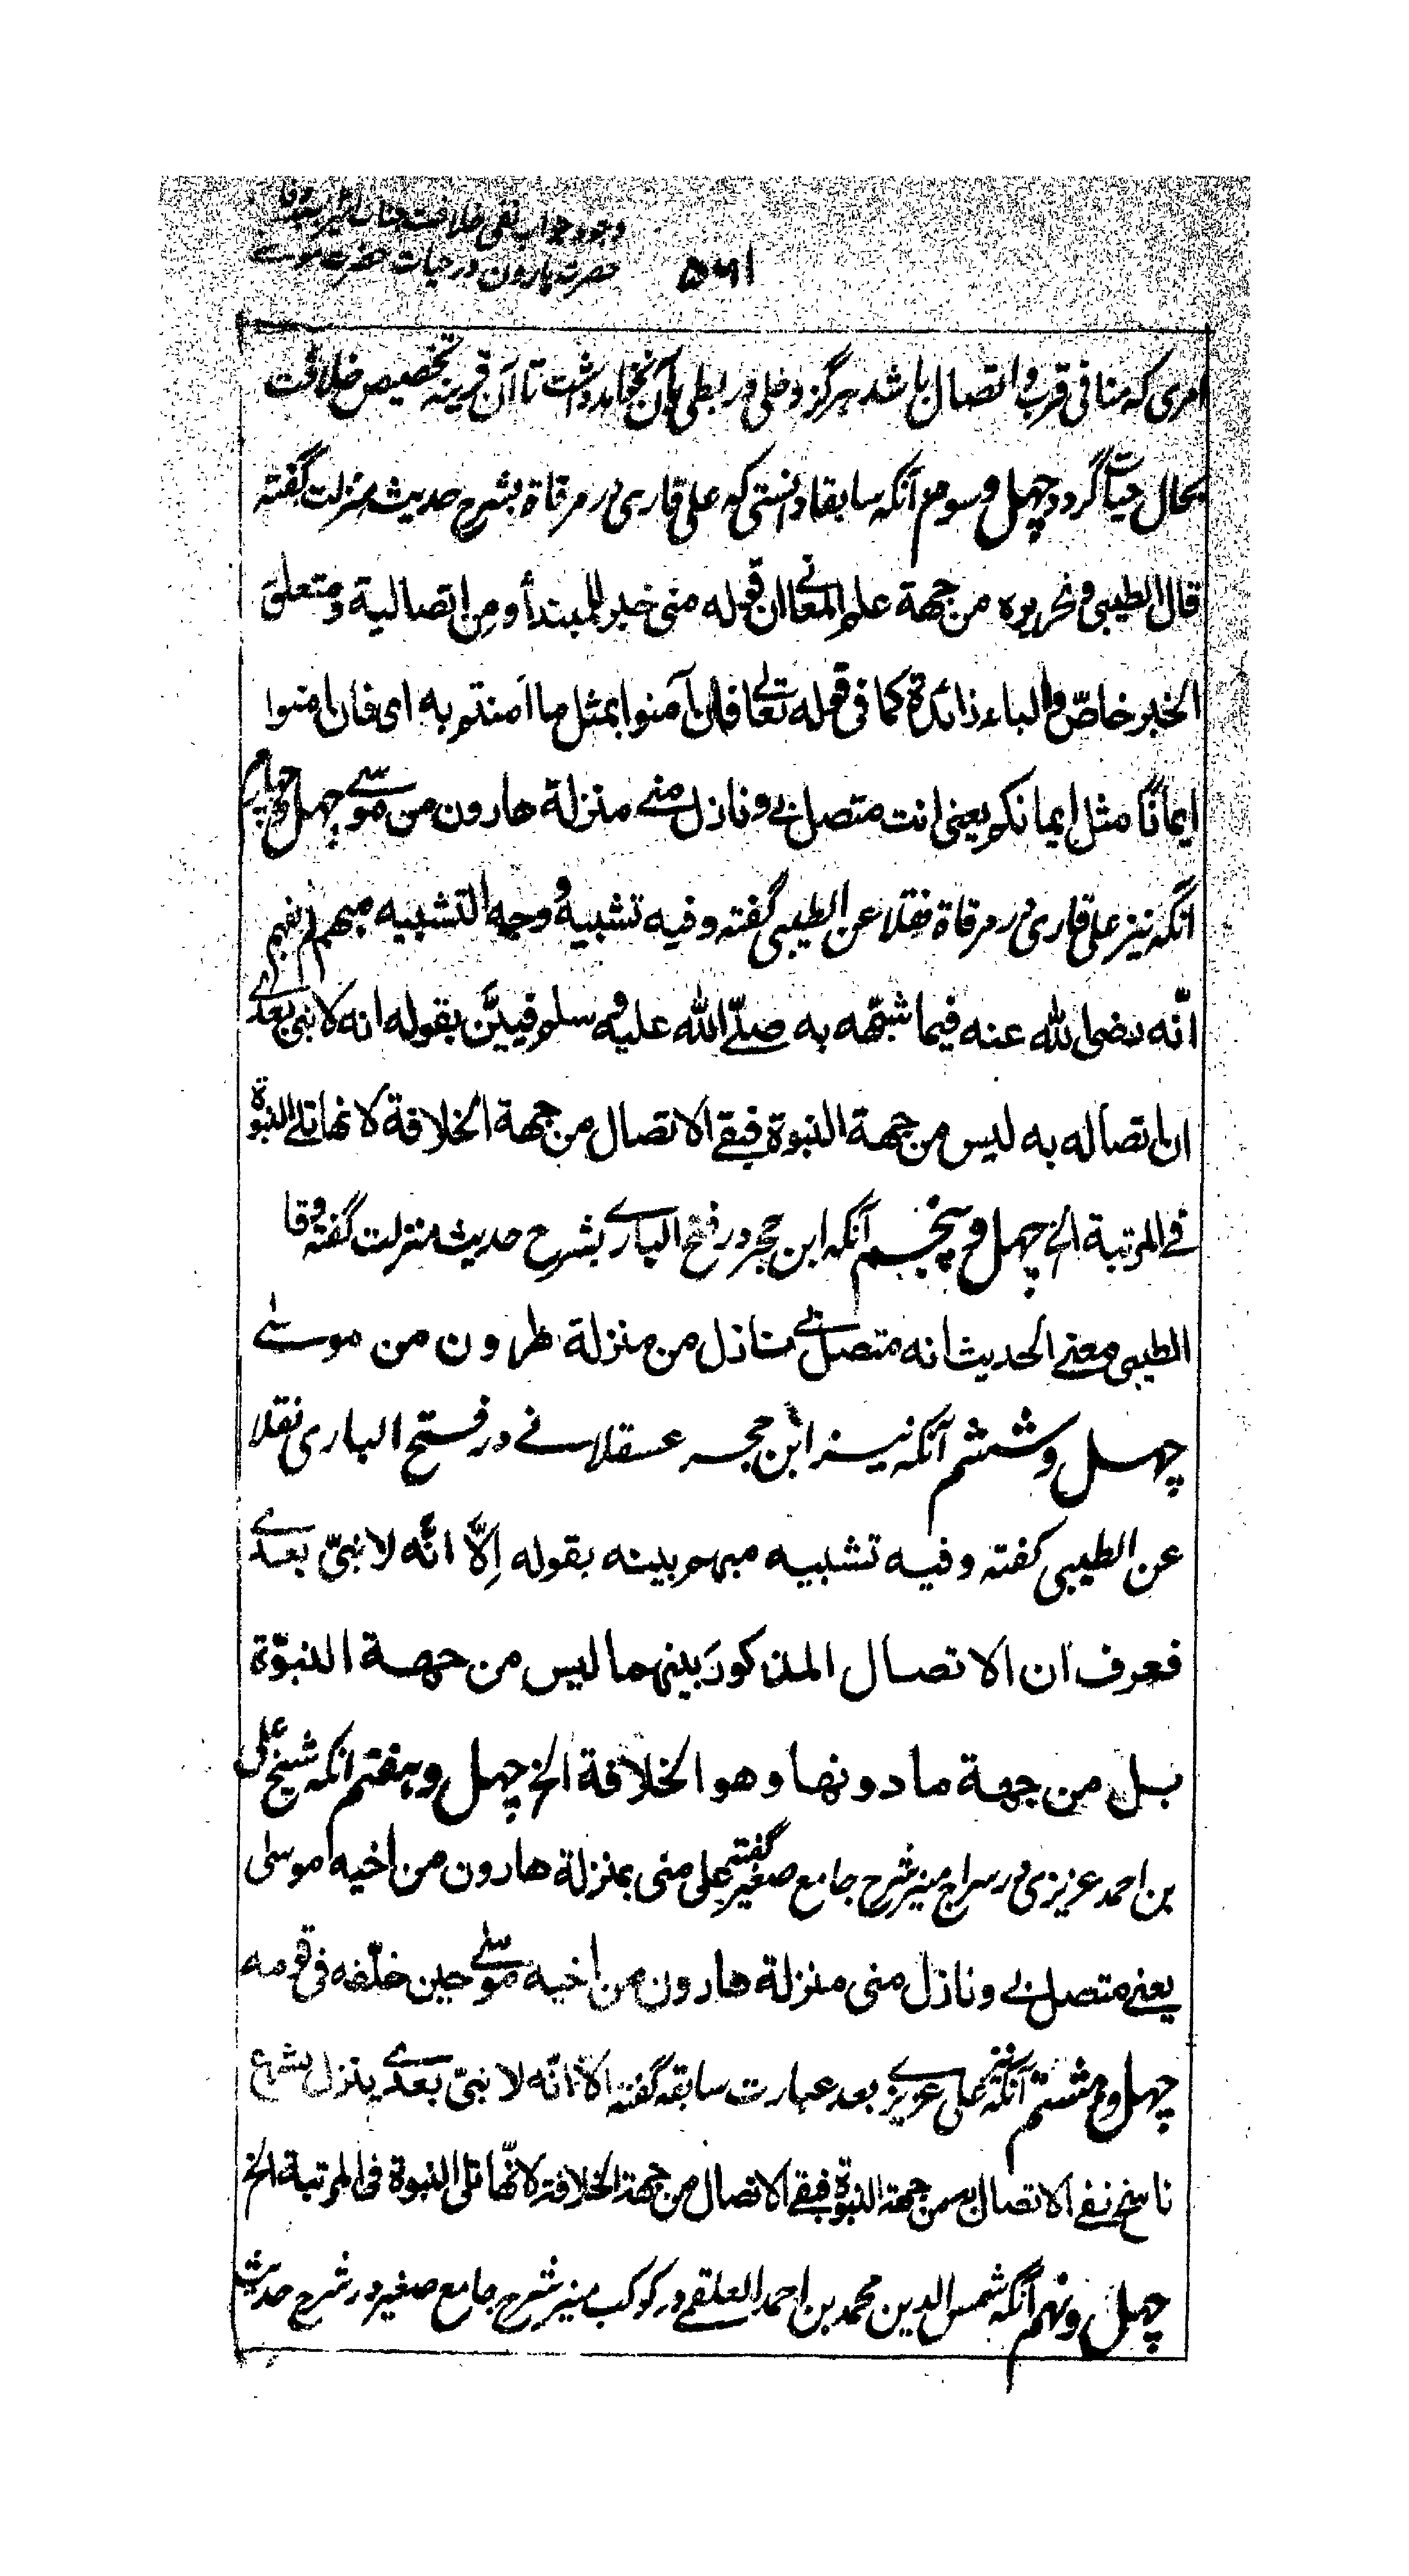 وجود جواب نفی خلافت جناب امیر بوفات
حضرت هارون در حیات حضرت موسے
۵۶۱
امری که منافی قرب و اتصال باشد هرگز دخلی و ربطی بآن نخواهد داشت تا آن قرینه تخصیص خلافت
بحال حیات گردد چهل و سوم آنکه سابقا دانستی که علی قاری در مرقاة بشرح حدیث منزلت گفته
قال الطیبی و تحریره من جهة علم المعانی ان قوله منی خبر للمبتدأ و مِن اتصالیة و متعلق
الخبر خاصّ والباء زائدة کما فی قوله تعالی فان آمنوا بمثل ما اٰمنتم به ای فان اٰمنوا
ایمانًا مثل ایمانکم یعنی انت متصل بی و نازل منے منزلة هارون من موسے چهل و چهارم
آنکه نیز علی قاری در مرقاة نقلا عن الطیبی گفته و فیه تشبیهٌ و وجه التشبیه مبهم لم یفهم
انّه رضی الله عنه فیما شبّهه به صلّے الله علیه و سلم فبیّن بقوله انه لا نبی بعدے
ان اتصاله به لیس من جهة النبوة فبقے الاتصال من جهة الخلافة لانها تلے النبوة
فے المرتبة الخ چهل و پنجم آنکه ابن حجر در فتح الباری بشرح حدیث منزلت گفته و قا
الطیبی معنے الحدیث انه متصل بے نازل من منزلة هارون من موسے
چهل و ششم آنکه نیز ابن حجر عسقلانے در فتح الباری نقلا
عن الطیبی گفته و فیه تشبیه مبهم بینه بقوله اِلّا انّه لا نبیّ بعدے
فعرف ان الاتصال المذکور بینهما لیس من جهة النبوّة
بل من جهة ما دونها و هو الخلافة الخ چهل و هفتم آنکه شیخ علی
بن احمد عزیزی در سراج منیر شرح جامع صغیر گفته علی منی بمنزلة هارون من اخیه موسی
یعنے متصل بے و نازل منی منزلة هارون من اخیه موسے حین خلّفه فی قومه
چهل و هشتم آنکه نیز علی عزیزے بعد عبارت سابقه گفته الّا انّه لا نبیّ بعدے ینزل بشرع
ناسخ نفے الاتصال به من جهة النبوّة فبقے الاتصال من جهة الخلافة لانّها تلی النبوة فی المرتبة الخ
چهل و نهم آنکه شمس الدین محمد بن احمد العلقمے در کوکب منیر شرح جامع صغیر در شرح حدیث